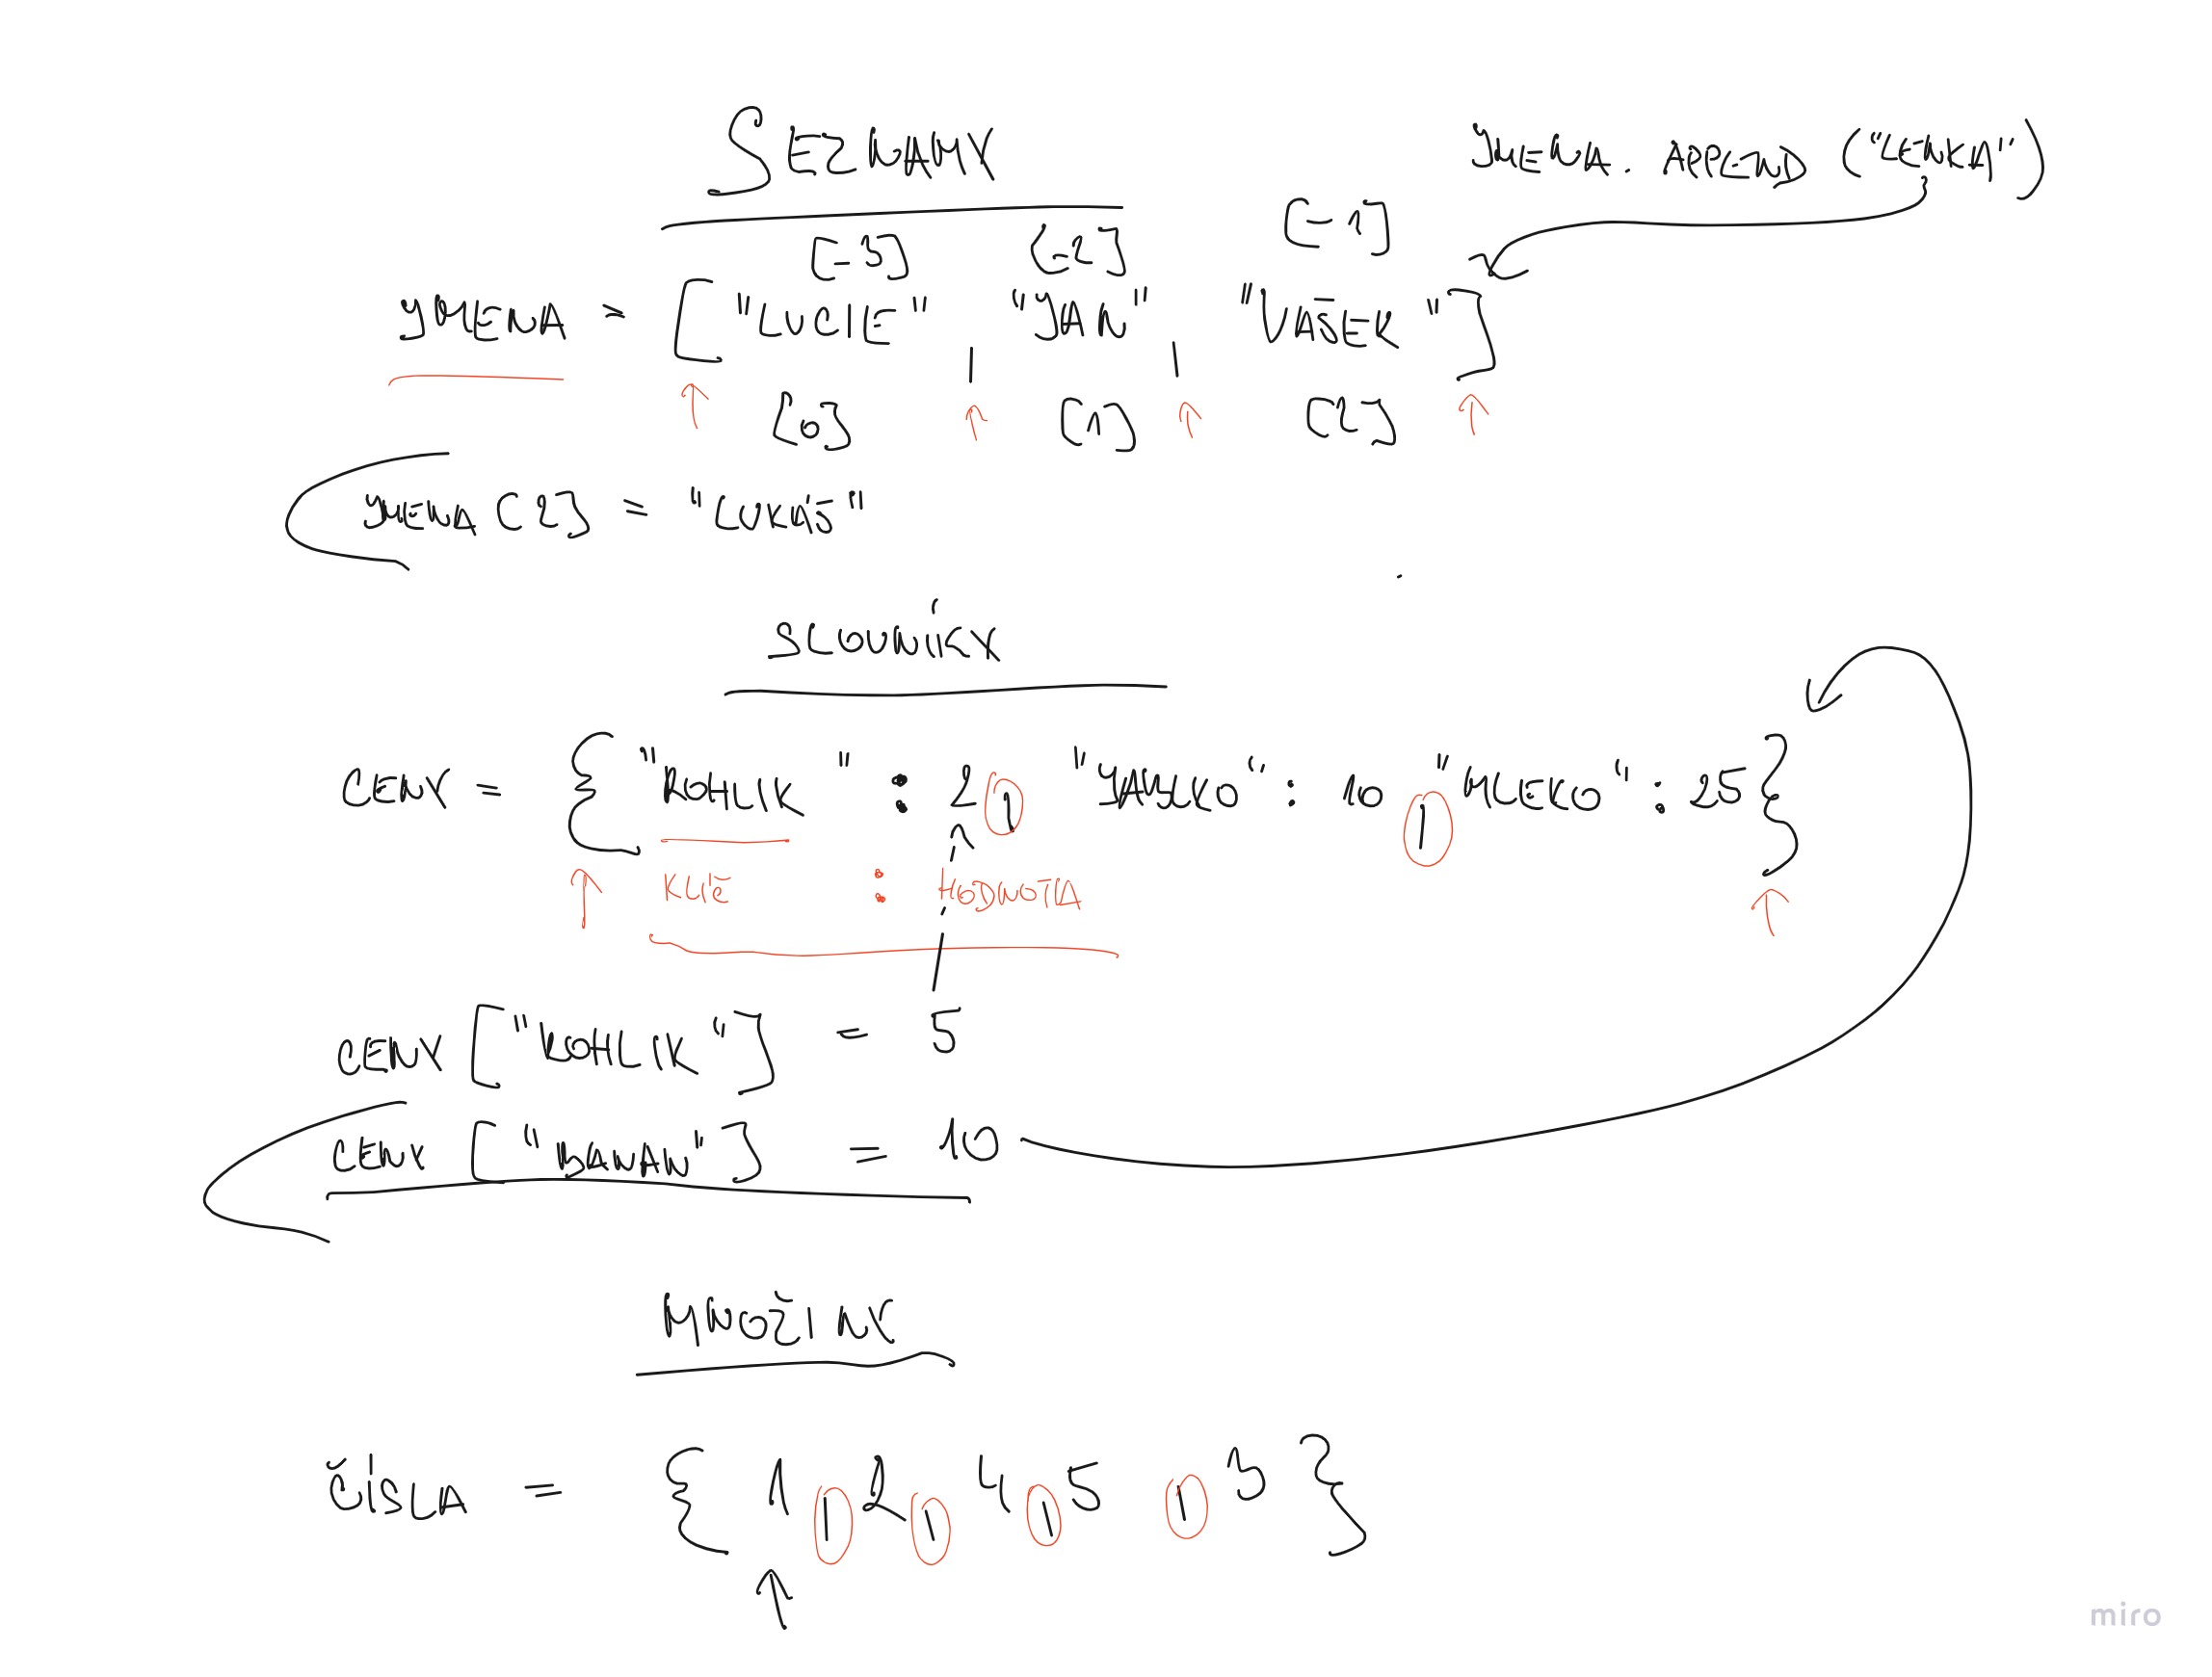 SEZNAMY
JMENA.APPEND("LENKA")
[-3] [-2] [-1]
JMENA = ["LUCIE", "JAN", "VAŠEK"]
[0] [1] [2]
JMENA[2] = "LUKÁŠ"
SLOVNÍKY
CENY = {"ROHLIK" : 2, "JABLKO" : 10, "MLEKO" : 25}
KLIČ : HODNOTA
CENY["ROHLIK"] = 5
CENY["BANAN"] = 10
MNOŽINY
ČÍSLA = {1, 2, 4, 5, 3}
miro